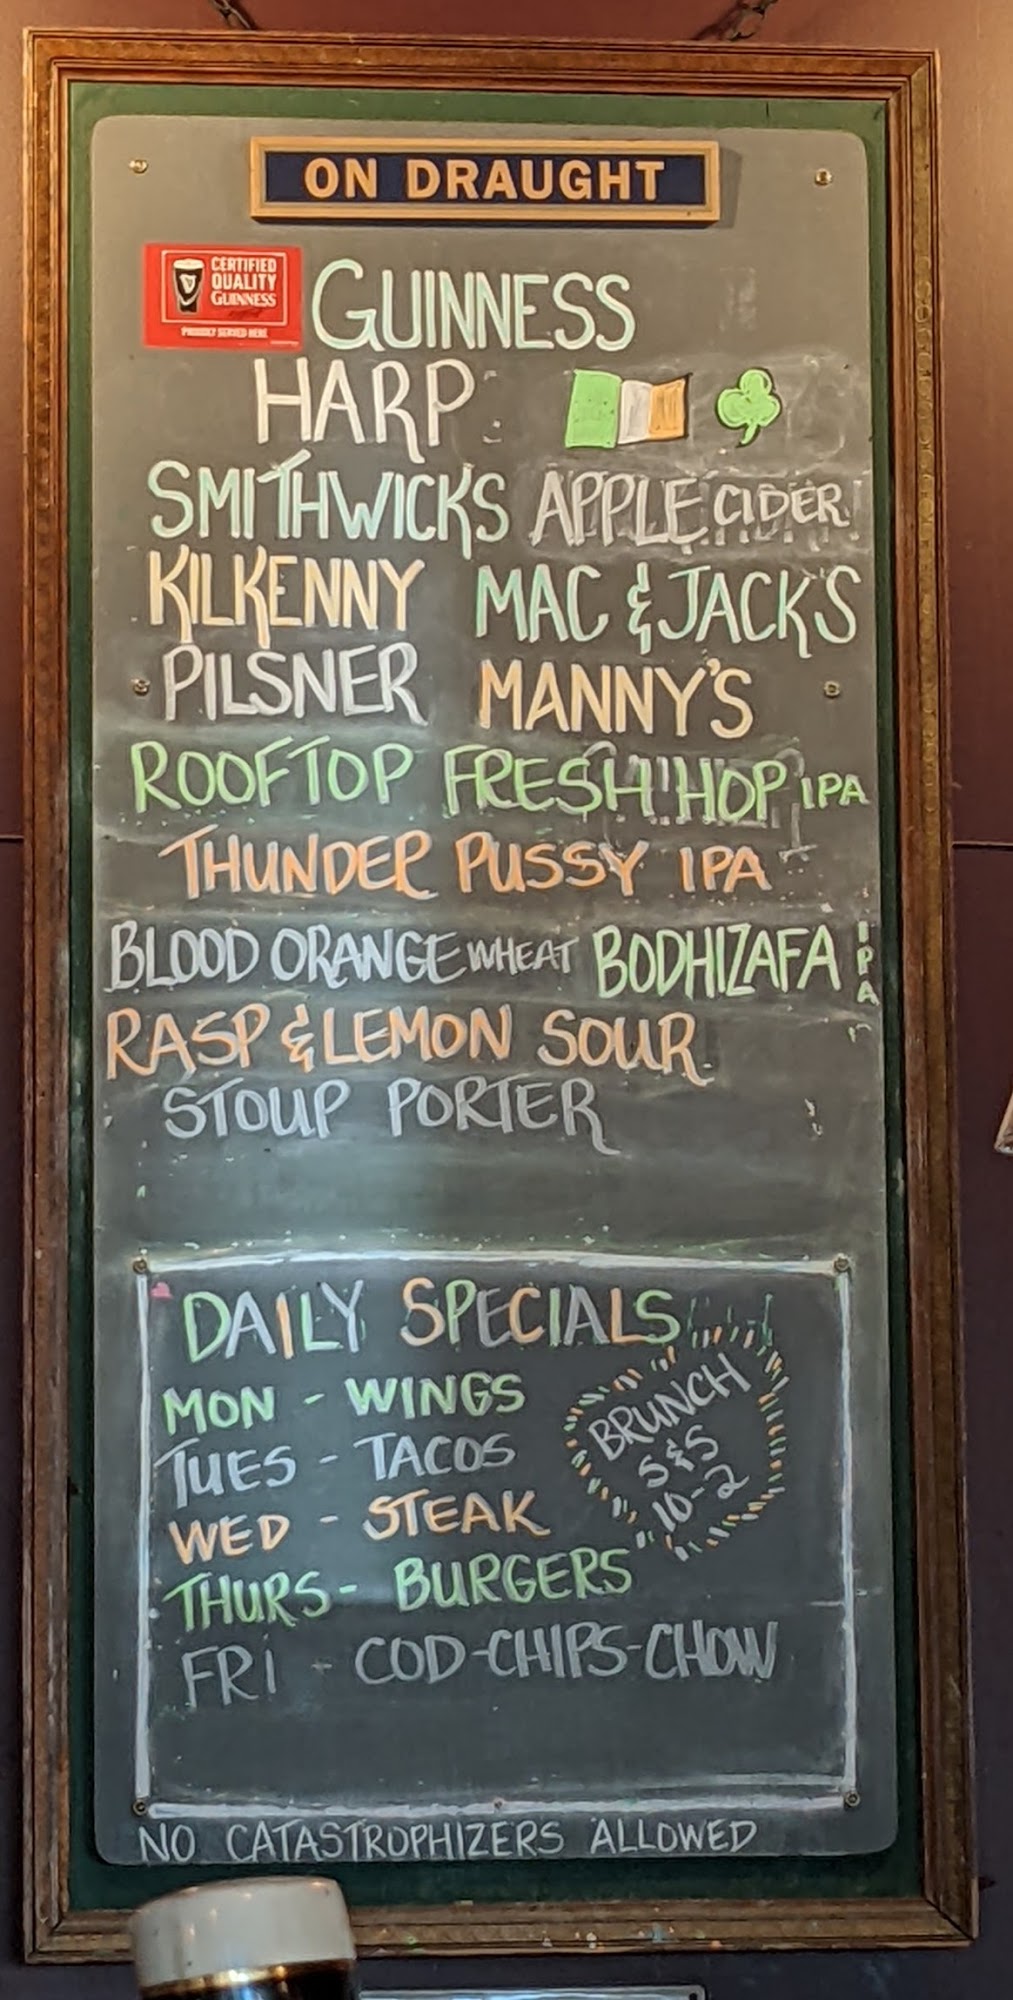 ON DRAUGHT
CERTIFIED
QUALITY
GUINNESS
PROUDLY SERVED HERE
GUINNESS
HARP
SMITHWICKS APPLE CIDER
KILKENNY MAC & JACK'S
PILSNER MANNY'S
ROOFTOP FRESH HOP IPA
THUNDER PUSSY IPA
BLOOD ORANGE WHEAT BODHIZAFA IPA
RASP & LEMON SOUR
STOUP PORTER
DAILY SPECIALS
MON - WINGS
TUES - TACOS
WED - STEAK
THURS - BURGERS
FRI - COD-CHIPS-CHOW
BRUNCH
S&S
10-2
NO CATASTROPHIZERS ALLOWED